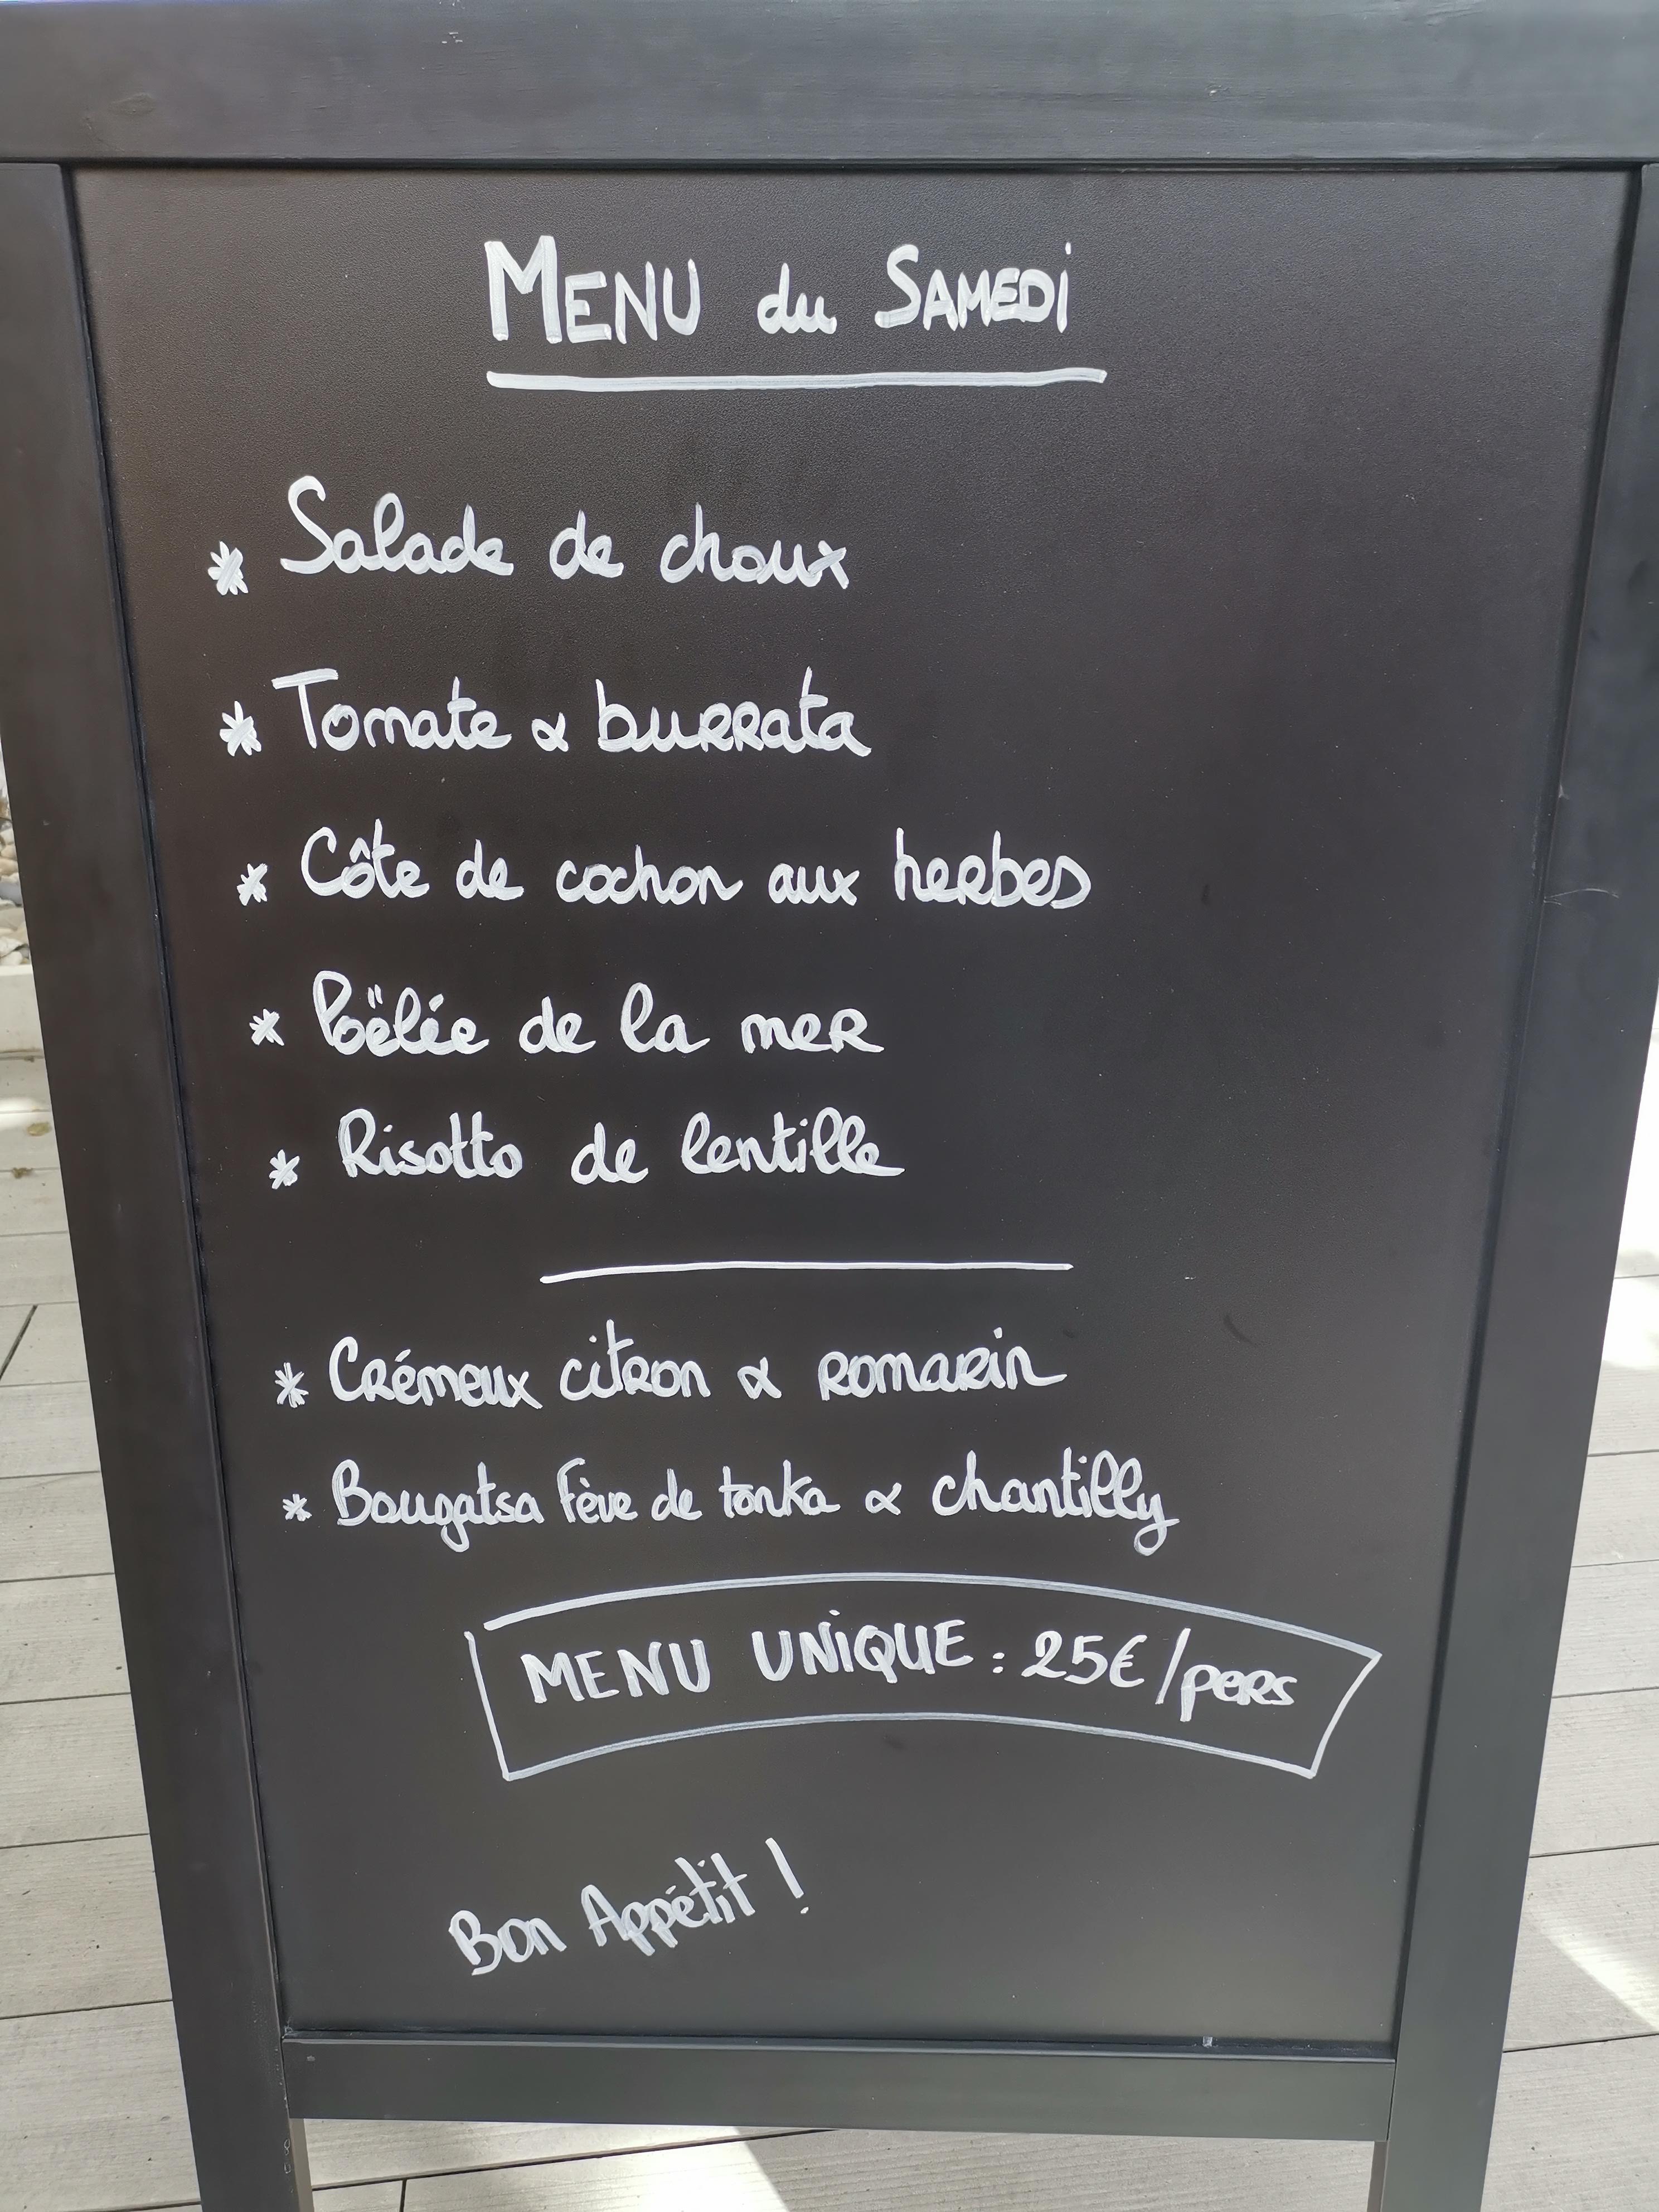 MENU du SAMEDI
* Salade de choux
* Tomate & burrata
* Côte de cochon aux herbes
* Poëlée de la mer
* Risotto de lentille
* Crémeux citron & romarin
* Bougatsa Fève de tonka & chantilly
MENU UNIQUE : 25€/pers
Bon Appétit !